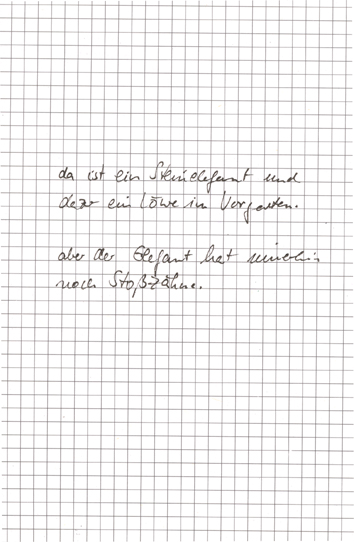 da ist ein Steinelefant und
dazu ein Löwe im Vorgarten.
aber der Elefant hat immerhin
noch Stoßzähne.